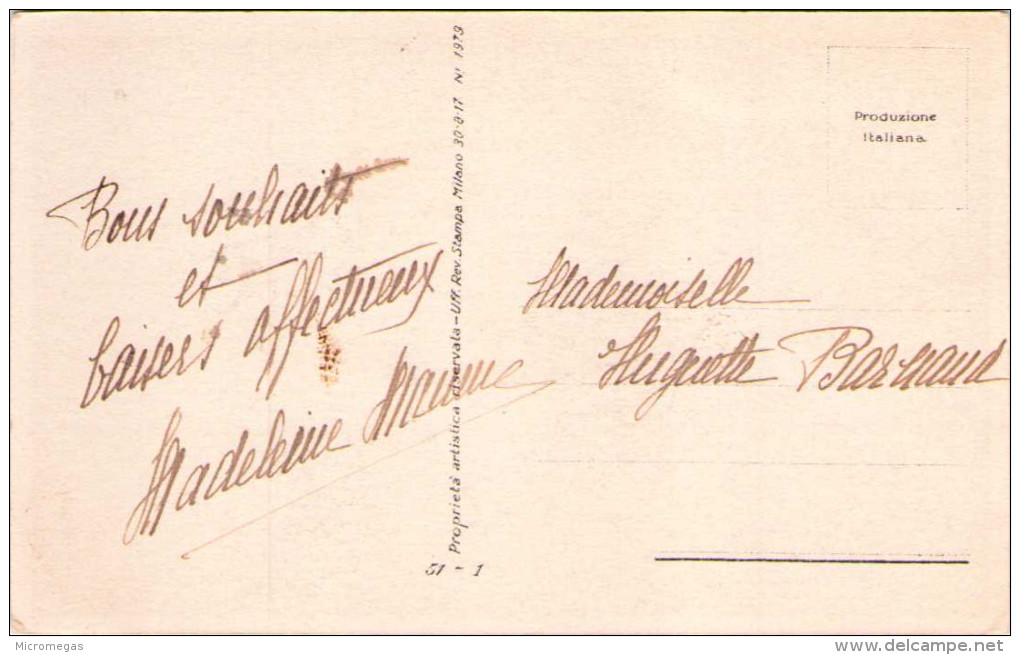 Bons souhaits
et
baisers affectueux
Madeleine
Proprietà artistica riservata - Uff. Rev. Stampa Milano 30-8-17 N. 1979
51 - 1
Produzione
Italiana.
Mademoiselle
Huguette
Micromegas
www.delcampe.net